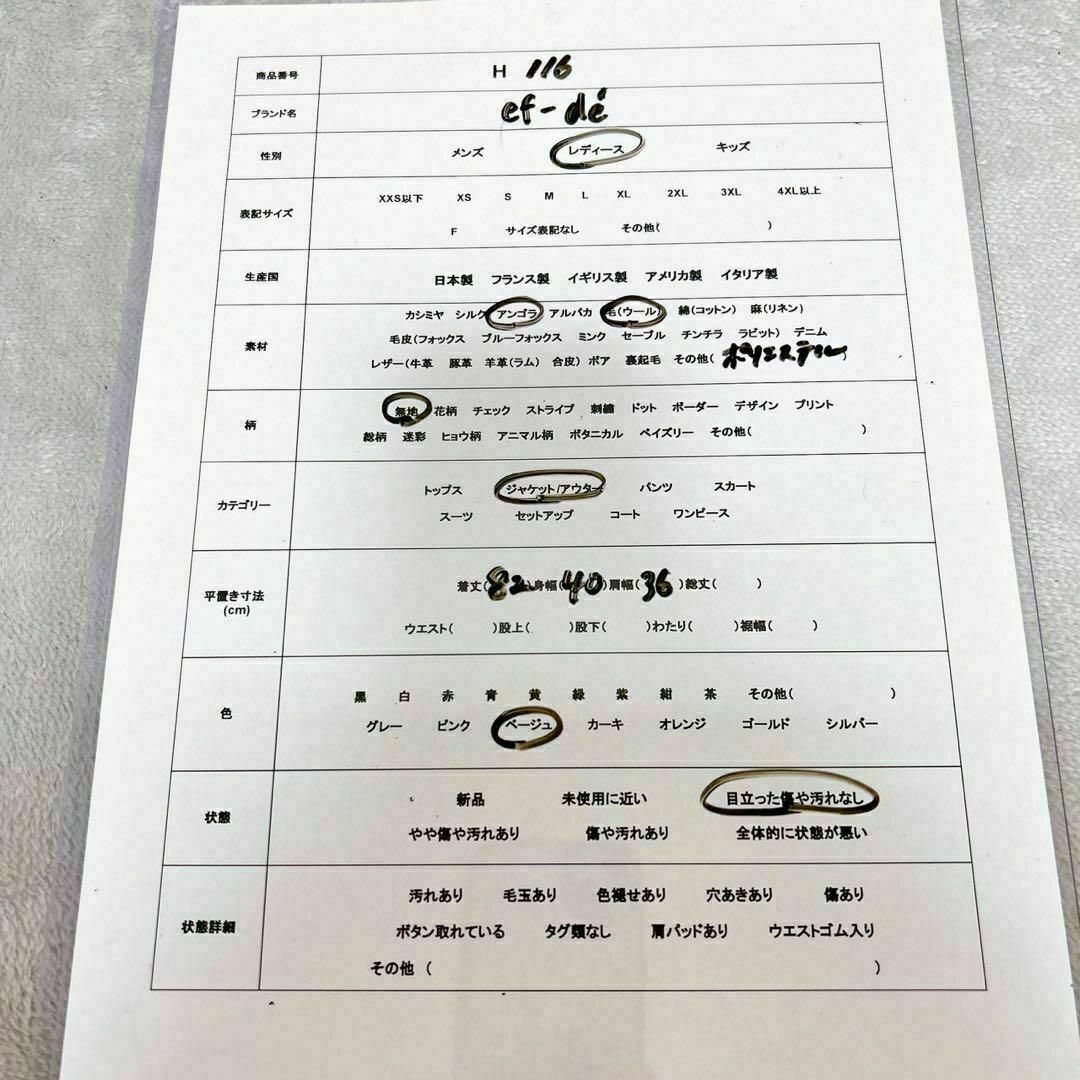 商品番号 H 116
ブランド名 ef-dé
性別 メンズ レディース キッズ
表記サイズ
XXS以下 XS S M L XL 2XL 3XL 4XL以上
F サイズ表記なし その他( )
生産国 日本製 フランス製 イギリス製 アメリカ製 イタリア製
素材
カシミヤ シルク アンゴラ アルパカ 毛(ウール) 綿(コットン) 麻(リネン)
毛皮(フォックス ブルーフォックス ミンク セーブル チンチラ ラビット) デニム
レザー(牛革 豚革 羊革(ラム) 合皮) ボア 裏起毛 その他( ポリエステル
柄
無地 花柄 チェック ストライプ 刺繍 ドット ボーダー デザイン プリント
総柄 迷彩 ヒョウ柄 アニマル柄 ボタニカル ペイズリー その他( )
カテゴリー
トップス ジャケット/アウター パンツ スカート
スーツ セットアップ コート ワンピース
平置き寸法
(cm)
着丈(82)身幅(40)肩幅(36)総丈( )
ウエスト( )股上( )股下( )わたり( )裾幅( )
色
黒 白 赤 青 黄 緑 紫 紺 茶 その他( )
グレー ピンク ベージュ カーキ オレンジ ゴールド シルバー
状態
新品 未使用に近い 目立った傷や汚れなし
やや傷や汚れあり 傷や汚れあり 全体的に状態が悪い
状態詳細
汚れあり 毛玉あり 色褪せあり 穴あきあり 傷あり
ボタン取れている タグ類なし 肩パッドあり ウエストゴム入り
その他 ( )